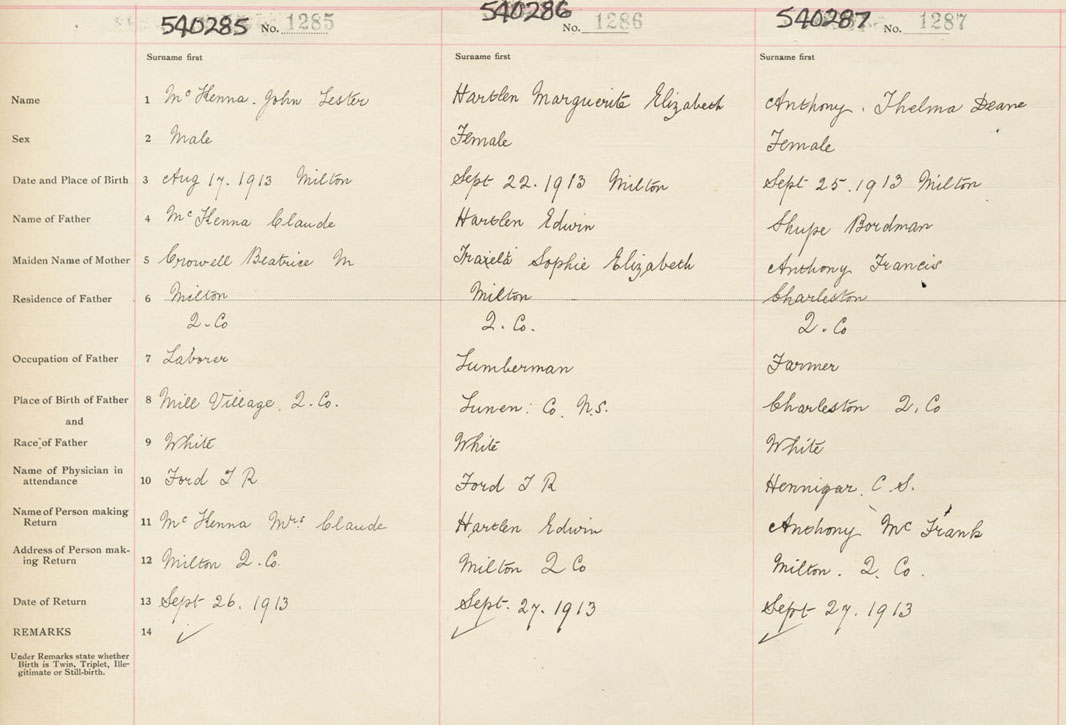 540285 No. 1285 540286 No. 1286 540287 No. 1287
Surname first Surname first Surname first
Name 1 Mc Kenna. John Lester Hartlen Marguerite Elizabeth Anthony. Thelma Deane
Sex 2 Male Female Female
Date and Place of Birth 3 Aug 17. 1913 Milton Sept 22. 1913 Milton Sept 25. 1913 Milton
Name of Father 4 Mc Kenna Claude Hartlen Edwin Shupe Bordman
Maiden Name of Mother 5 Crowell Beatrice M Sophie Elizabeth Anthony Francis
Residence of Father 6 Milton Milton Charleston
Q. Co Q. Co. Q. Co
Occupation of Father 7 Laborer Lumberman Farmer
Place of Birth of Father 8 Mill Village, Q. Co. Lunen: Co, N.S. Charleston Q. Co
and
Race of Father 9 White White White
Name of Physician in
attendance 10 Ford T R Ford T R Hennigar. C. S.
Name of Person making
Return 11 Mc Kenna Mrs Claude Hartlen Edwin Anthony Frank
Address of Person mak-
ing Return 12 Milton Q. Co. Milton Q Co Milton. Q. Co.
Date of Return 13 Sept 26. 1913 Sept. 27. 1913 Sept 27. 1913
REMARKS 14 ✓ ✓ ✓
Under Remarks state whether
Birth is Twin, Triplet, Ille-
gitimate or Still-birth.